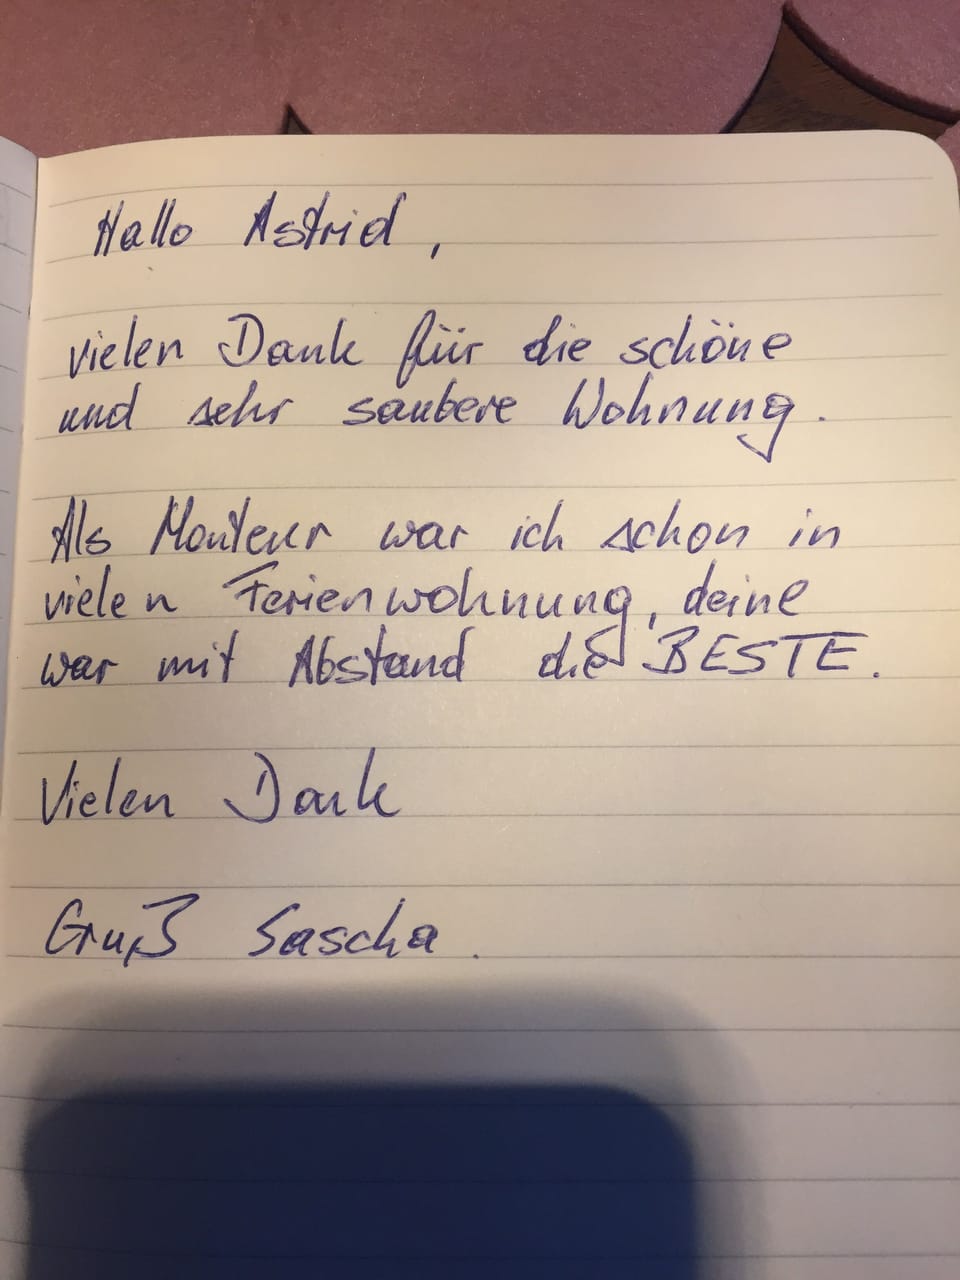 Hallo Astrid,
vielen Dank für die schöne
und sehr saubere Wohnung.
Als Monteur war ich schon in
vielen Ferienwohnung, deine
war mit Abstand die BESTE.
Vielen Dank
Gruß Sascha.